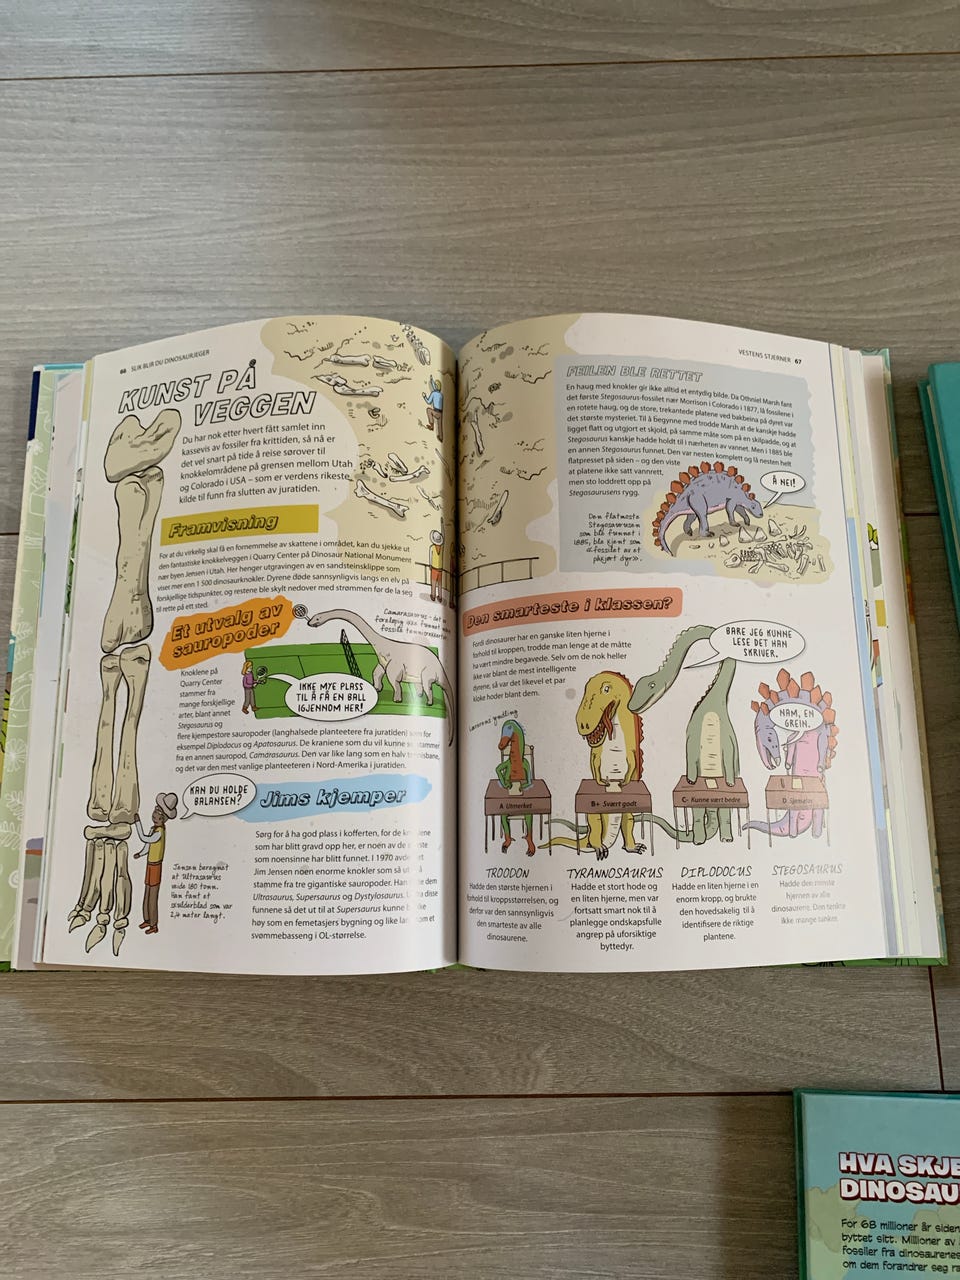 66 SLIK BLIR DU DINOSAURJEGER
KUNST PÅ
VEGGEN
Du har nok etter hvert fått samlet inn
kassevis av fossiler fra krittiden, så nå er
det vel snart på tide å reise sørover til
knokkelområdene på grensen mellom Utah
og Colorado i USA – som er verdens rikeste
kilde til funn fra slutten av juratiden.
Framvisning
For at du virkelig skal få en fornemmelse av skattene i området, kan du sjekke ut
den fantastiske knokkelveggen i Quarry Center på Dinosaur National Monument
nær byen Jensen i Utah. Her henger utgravingen av en sandsteinsklippe som
viser mer enn 1 500 dinosaurknokler. Dyrene døde sannsynligvis langs en elv på
forskjellige tidspunkter, og restene ble skylt nedover med strømmen før de la seg
til rette på ett sted.
Et utvalg av
sauropoder
Camarasaurus – det
foreløpig ikke funnet
fossile tennisrekkerter
IKKE MYE PLASS
TIL Å FÅ EN BALL
IGJENNOM HER!
Knoklene på
Quarry Center
stammer fra
mange forskjellige
arter, blant annet
Stegosaurus og
flere kjempestore sauropoder (langhalsede planteetere fra juratiden) som for
eksempel Diplodocus og Apatosaurus. De kraniene som du vil kunne se stammer
fra en annen sauropod, Camarasaurus. Den var like lang som en halv tennisbane,
og det var den mest vanlige planteeteren i Nord-Amerika i juratiden.
KAN DU HOLDE
BALANSEN?
Jims kjemper
Sørg for å ha god plass i kofferten, for de
som har blitt gravd opp her, er noen av de
som noensinne har blitt funnet. I 1970
Jim Jensen noen enorme knokler som så
stamme fra tre gigantiske sauropoder. Han dem
Ultrasaurus, Supersaurus og Dystylosaurus. disse
funnene så det ut til at Supersaurus kunne
høy som en femetasjers bygning og like et
svømmebasseng i OL-størrelse.
Jensen beregnet
at Ultrasaurus
veide 180 tonn.
Han fant et
skulderblad som var
2,4 meter langt.
VESTENS STJERNER 67
FEILEN BLE RETTET
En haug med knokler gir ikke alltid et entydig bilde. Da Othniel Marsh fant
det første Stegosaurus-fossilet nær Morrison i Colorado i 1877, lå fossilene i
en rotete haug, og de store, trekantede platene ved bakbeina på dyret var
det største mysteriet. Til å begynne med trodde Marsh at de kanskje hadde
ligget flatt og utgjort et skjold, på samme måte som på en skilpadde, og at
Stegosaurus kanskje hadde holdt til i nærheten av vannet. Men i 1885 ble
en annen Stegosaurus funnet. Den var nesten komplett og lå nesten helt
flatpresset på siden – og den viste
at platene ikke satt vannrett,
men sto loddrett opp på
Stegosaurusens rygg.
Å NEI!
Den flatmoste
Stegosaurusen
som ble funnet i
1885, ble kjent som
«fossilet av et
påkjørt dyr».
Den smarteste i klassen?
Fordi dinosaurer har en ganske liten hjerne i
forhold til kroppen, trodde man lenge at de måtte
ha vært mindre begavede. Selv om de nok heller
ikke var blant de mest intelligente
dyrene, så var det likevel et par
kloke hoder blant dem.
BARE JEG KUNNE
LESE DET HAN
SKRIVER.
NAM, EN
GREIN.
Lærerens yndling
A Utmerket
B+ Svært godt
C- Kunne vært bedre
D Sjanseløs
TROODON
Hadde den største hjernen i
forhold til kroppsstørrelsen, og
derfor var den sannsynligvis
den smarteste av alle
dinosaurene.
TYRANNOSAURUS
Hadde et stort hode og
en liten hjerne, men var
fortsatt smart nok til å
planlegge ondskapsfulle
angrep på uforsiktige
byttedyr.
DIPLODOCUS
Hadde en liten hjerne i en
enorm kropp, og brukte
den hovedsakelig til å
identifisere de riktige
plantene.
STEGOSAURUS
Hadde den minste
hjernen av alle
dinosaurene. Den tenkte
ikke mange tanker.
HVA SKJE
DINOSAU
For 68 millioner år siden
byttet sitt. Millioner av
fossiler fra dinosaurenes
om dem forandrer seg ra